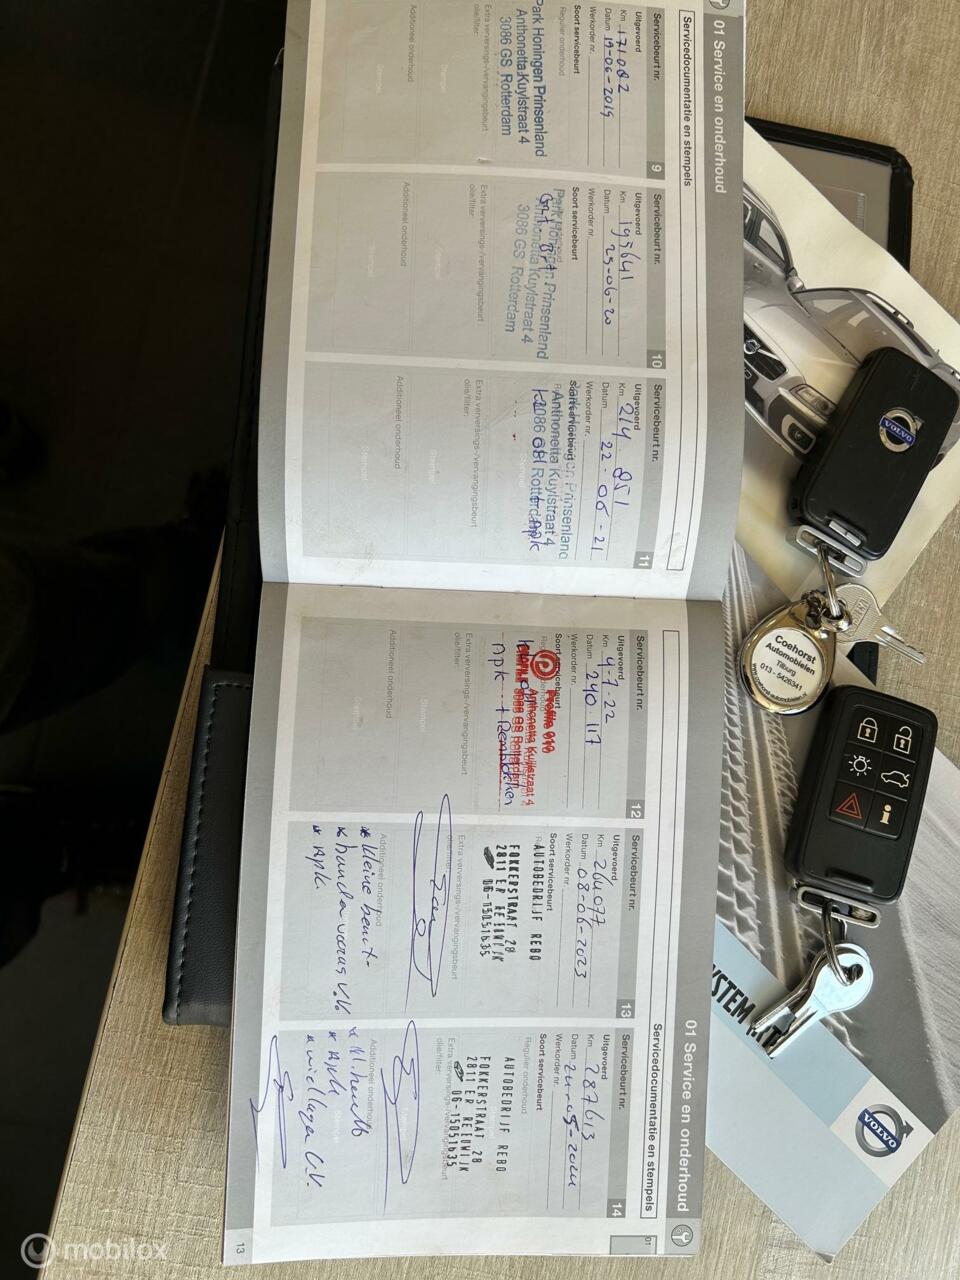 01 Service en onderhoud
Servicedocumentatie en stempels
Servicebeurt nr. 9
Uitgevoerd
Km 171082
Datum 19-06-2019
Werkorder nr.
Soort servicebeurt
Regulier onderhoud
Park Honingen Prinsenland
Anthonetta Kuylstraat 4
3086 GS Rotterdam
Extra verversings-/vervangingsbeurt
olie/filter:
Stempel
Additioneel onderhoud
Servicebeurt nr. 10
Uitgevoerd
Km 197641
Datum 25-06-20
Werkorder nr.
Soort servicebeurt
Park Honingen Prinsenland
Anthonetta Kuylstraat 4
3086 GS Rotterdam
Extra verversings-/vervangingsbeurt
olie/filter:
Stempel
Additioneel onderhoud
Servicebeurt nr. 11
Uitgevoerd
Km 214.851
Datum 22-06-21
Werkorder nr.
Soort servicebeurt
Prinsenland
Anthonetta Kuylstraat 4
3086 Rotterdam
Apk
Extra verversings-/vervangingsbeurt
olie/filter:
Stempel
Additioneel onderhoud
Stempel
Servicebeurt nr. 12
Uitgevoerd
Km 4-7-22
Datum 240.117
Werkorder nr.
Soort servicebeurt
Profile 010
Anthonetta Kuijlstraat 4
3086 GS Rotterdam
Apk +
Extra verversings-/vervangingsbeurt
olie/filter:
Stempel
Additioneel onderhoud
Servicebeurt nr. 13
Uitgevoerd
Km 264077
Datum 08-06-2023
Werkorder nr.
Soort servicebeurt
AUTOBEDRIJF REBO
FOKKERSTRAAT 28
2811 ER REEUWIJK
06-15051635
Extra verversings-/vervangingsbeurt
olie/filter:
Additioneel onderhoud
* kleine beurt
* Apk
01 Service en onderhoud
Servicedocumentatie en stempels
01
Servicebeurt nr. 14
Uitgevoerd
Km 287613
Datum
Werkorder nr.
Soort servicebeurt
Regulier onderhoud
AUTOBEDRIJF REBO
FOKKERSTRAAT 28
2811 ER REEUWIJK
06-15051635
Extra verversings-/vervangingsbeurt
olie/filter:
Stempel
Additioneel onderhoud
* Kl. beurt
* Apk
* wiellager
13
VOLVO
Coehorst
Automobielen
Tilburg
013 - 5426341
www.coehorst-automobielen.nl
VOLVO
mobilox